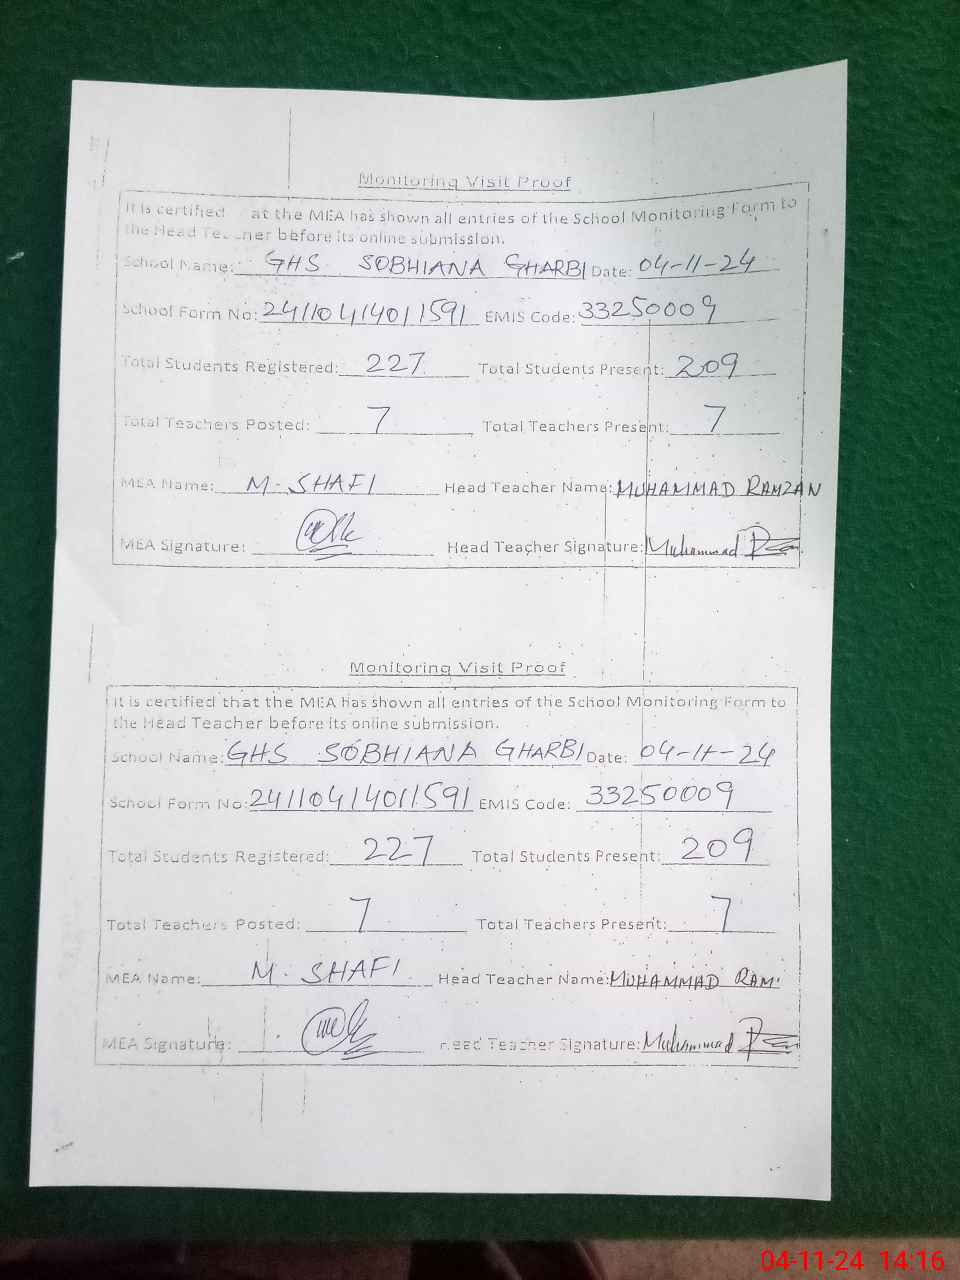 Monitoring Visit Proof
It is certified at the MEA has shown all entries of the School Monitoring Form to
the Head Teacher before its online submission.
School Name: GHS SOBHIANA GHARBI Date: 04-11-24
School Form No: 2411041401591 EMIS Code: 33250009
Total Students Registered: 227 Total Students Present: 209
Total Teachers Posted: 7 Total Teachers Present: 7
MEA Name: M. SHAFI Head Teacher Name: MUHAMMAD RAMZAN
MEA Signature: Head Teacher Signature: Muhammad
Monitoring Visit Proof
It is certified that the MEA has shown all entries of the School Monitoring Form to
the Head Teacher before its online submission.
School Name: GHS SOBHIANA GHARBI Date: 04-11-24
School Form No: 24110414011591 EMIS Code: 33250009
Total Students Registered: 227 Total Students Present: 209
Total Teachers Posted: 7 Total Teachers Present: 7
MEA Name: M. SHAFI Head Teacher Name: MUHAMMAD RAM
MEA Signature: Head Teacher Signature: Muhammad
04-11-24 14:16